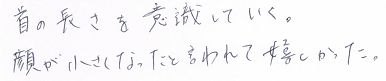 首の長さを意識していく。
顔が小さくなったと言われて嬉しかった。